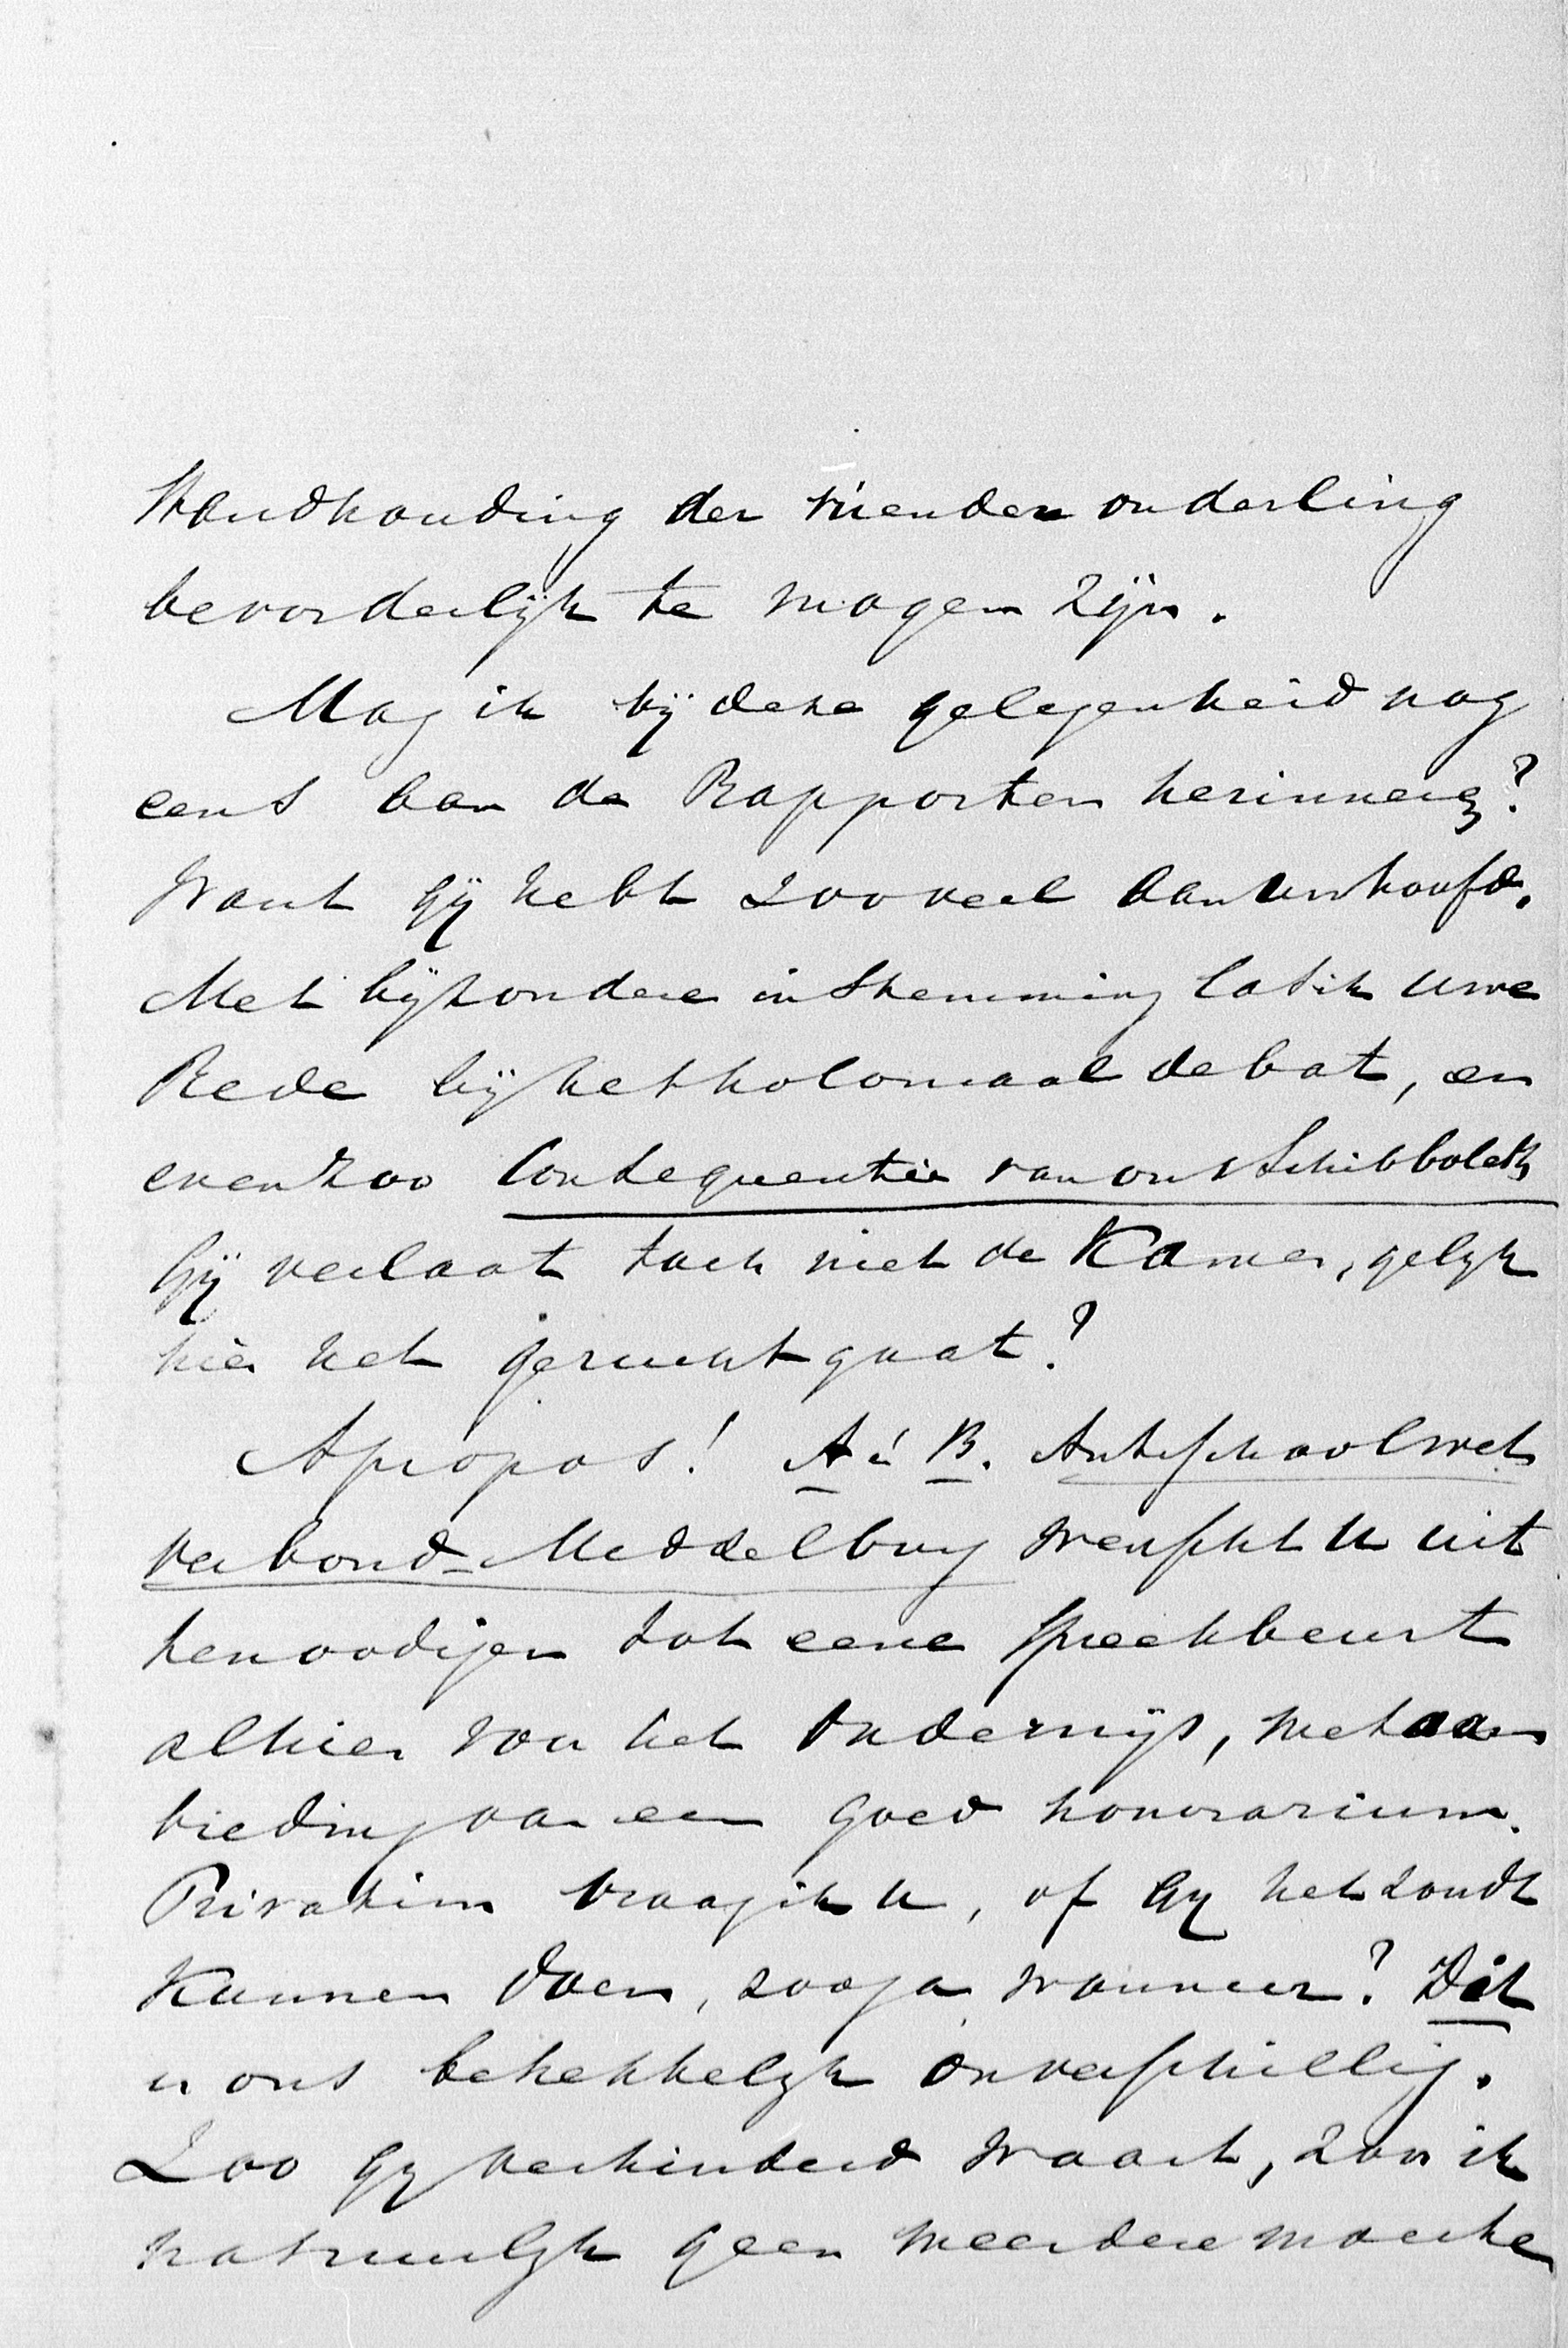 Standhouding der vrienden onderling
bevorderlijk te mogen zijn.
Mag ik bij deze gelegenheid nog
eens aan de Rapporten herinneren?
Want Gij hebt zooveel aan uw hoofd.
Met bijzondere instemming las ik uwe
Rede bij het koloniaal debat, en
evenzoo Consequentie van ons Schibboleth
Gij verlaat toch niet de Kamer, gelijk
hier het gerucht gaat?
Apropos! A. B. Antischoolwet
verbond-Middelburg wenscht U uit
tenoodigen tot eene spreekbeurt
alhier van het Onderwijs, met aan
bieding van een goed honorarium.
Privatim vraag ik U, of Gij het zoudt
kunnen doen, zoo ja wanneer? Dit
is ons betrekkelijk onverschillig.
Zoo gij verhinderd waart, zou ik
natuurlijk geen meerdere moeite